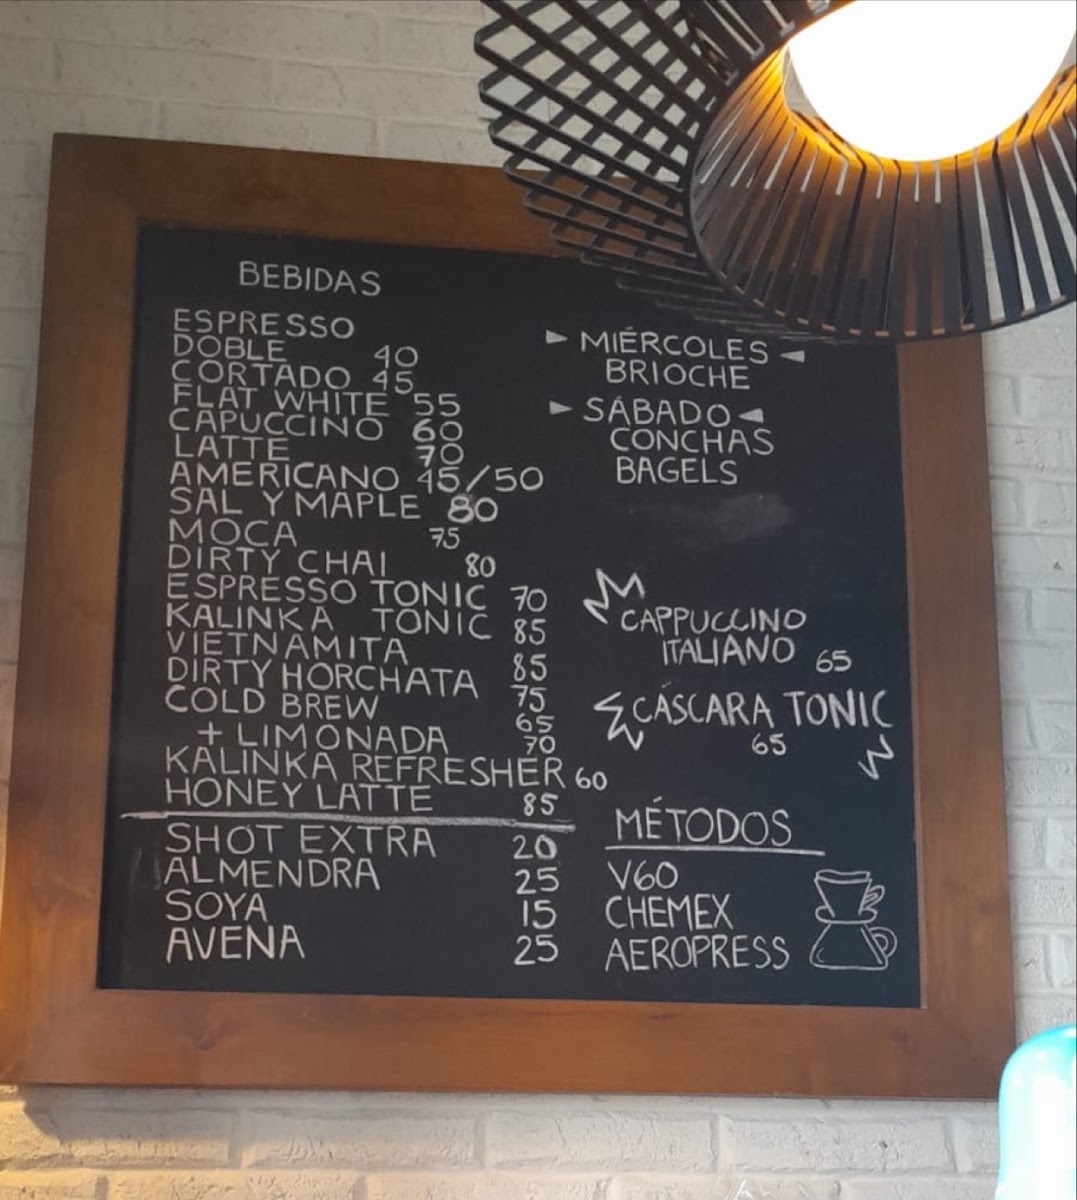 BEBIDAS
ESPRESSO
DOBLE 40
CORTADO 45
FLAT WHITE 55
CAPUCCINO 60
LATTE 70
AMERICANO 45/50
SAL Y MAPLE 80
MOCA 75
DIRTY CHAI 80
ESPRESSO TONIC 70
KALINKA TONIC 85
VIETNAMITA 85
DIRTY HORCHATA 75
COLD BREW 65
+ LIMONADA 70
KALINKA REFRESHER 60
HONEY LATTE 85
SHOT EXTRA 20
ALMENDRA 25
SOYA 15
AVENA 25
MIÉRCOLES
BRIOCHE
SÁBADO
CONCHAS
BAGELS
CAPPUCCINO
ITALIANO 65
CÁSCARA TONIC
65
MÉTODOS
V60
CHEMEX
AEROPRESS